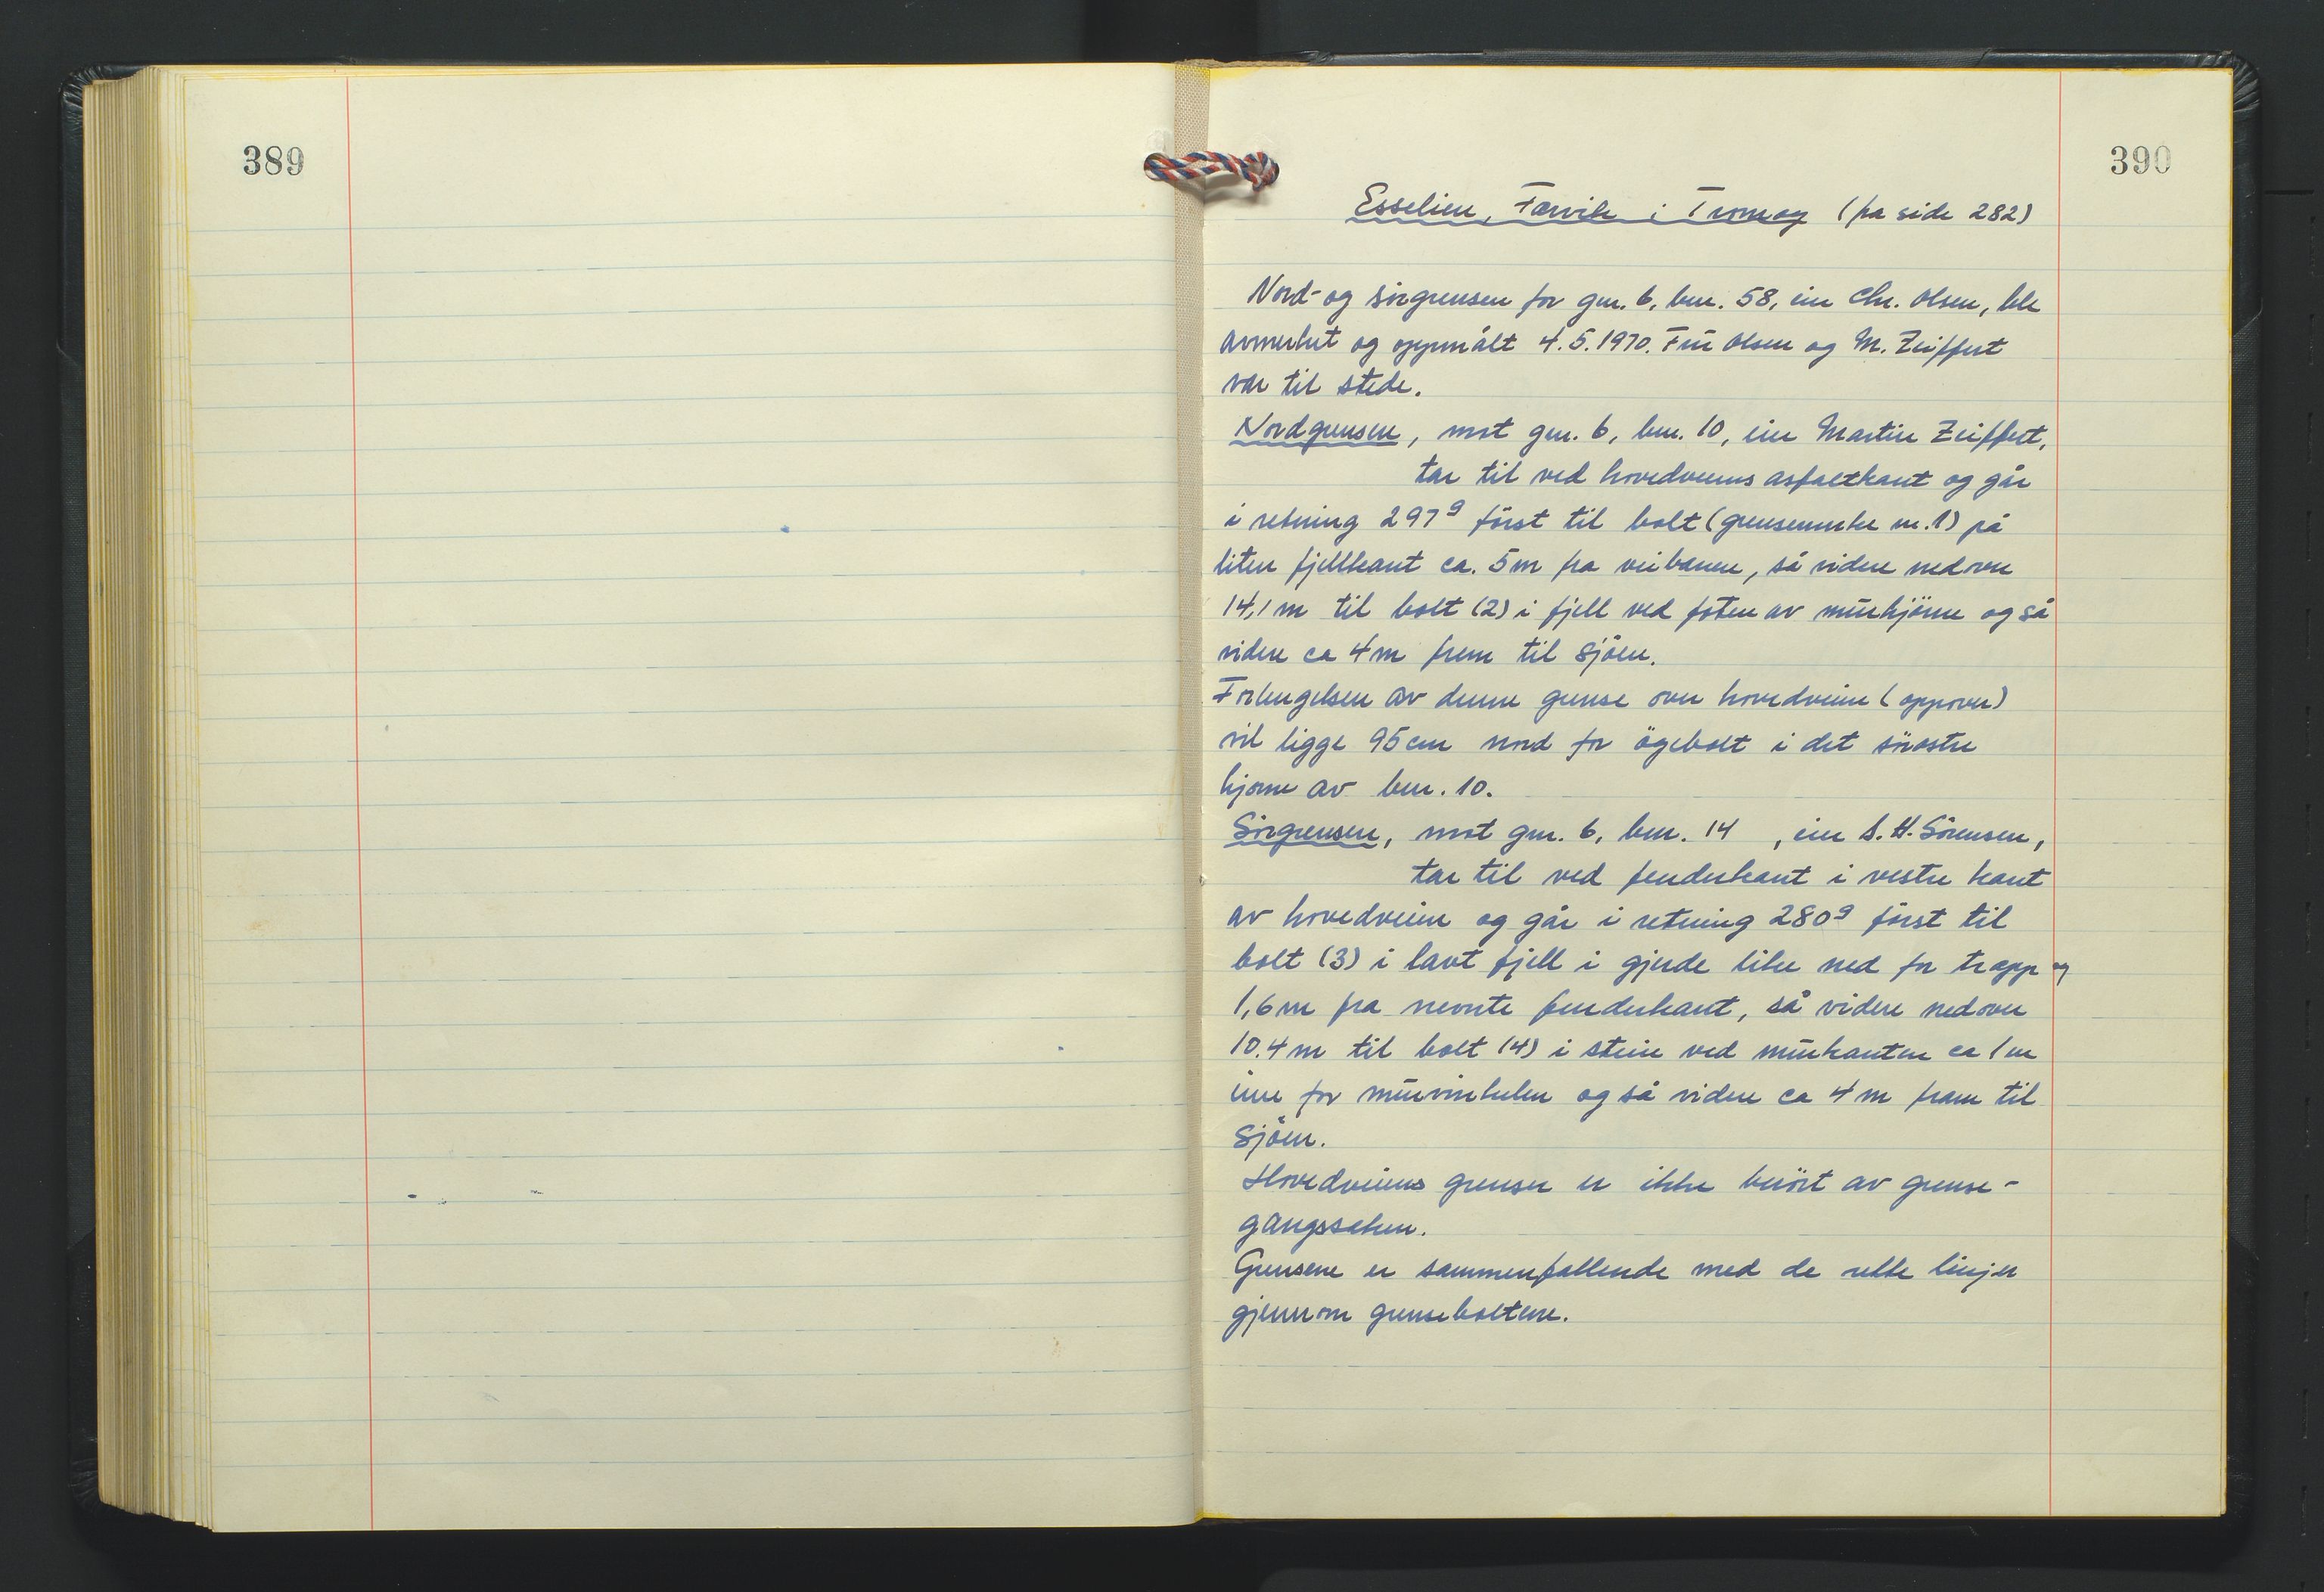 389
390
Esselien, Færvik i Tromøy (fra side 282)
Nord- og sörgrensen for gnr. 6, bnr. 58, eier Chr. Olsen, ble
avmerket og oppmålt 4.5.1970. Frü Olsen og M. Zeiffert
var til stede.
Nordgrensen, mot gnr. 6, bnr. 10, eier Martin Zeiffert,
tar til ved hovedveiens asfaltkant og går
i retning 297g först til bolt (grensemerke nr. 1) på
liten fjellkant ca. 5m fra veibanen, så videre nedover
14,1 m til bolt (2) i fjell ved foten av mürhjörne og så
videre ca 4m frem til sjöen.
Forlengelsen av denne grense over hovedveien (oppover)
vil ligge 95 cm nord for ögebolt i det sörøstre
hjørne av bnr. 10.
Sörgrensen, mot gnr. 6, bnr. 14 , eier S. H. Sörensen,
tar til ved fenderkant i vestre kant
av hovedveien og går i retning 280g först til
bolt (3) i lavt fjell i gjerde like ned for trapp og
1,6 m fra nevnte fenderkant, så videre nedover
10.4 m til bolt (4) i stein ved mürkanten ca 1 m
inne for mürvinkelen og så videre ca 4 m fram til
sjöen.
Hovedveiens grenser er ikke berört av grense-
gangssaken.
Grensene er sammenfallende med de rette linjer
gjennom grenseboltene.